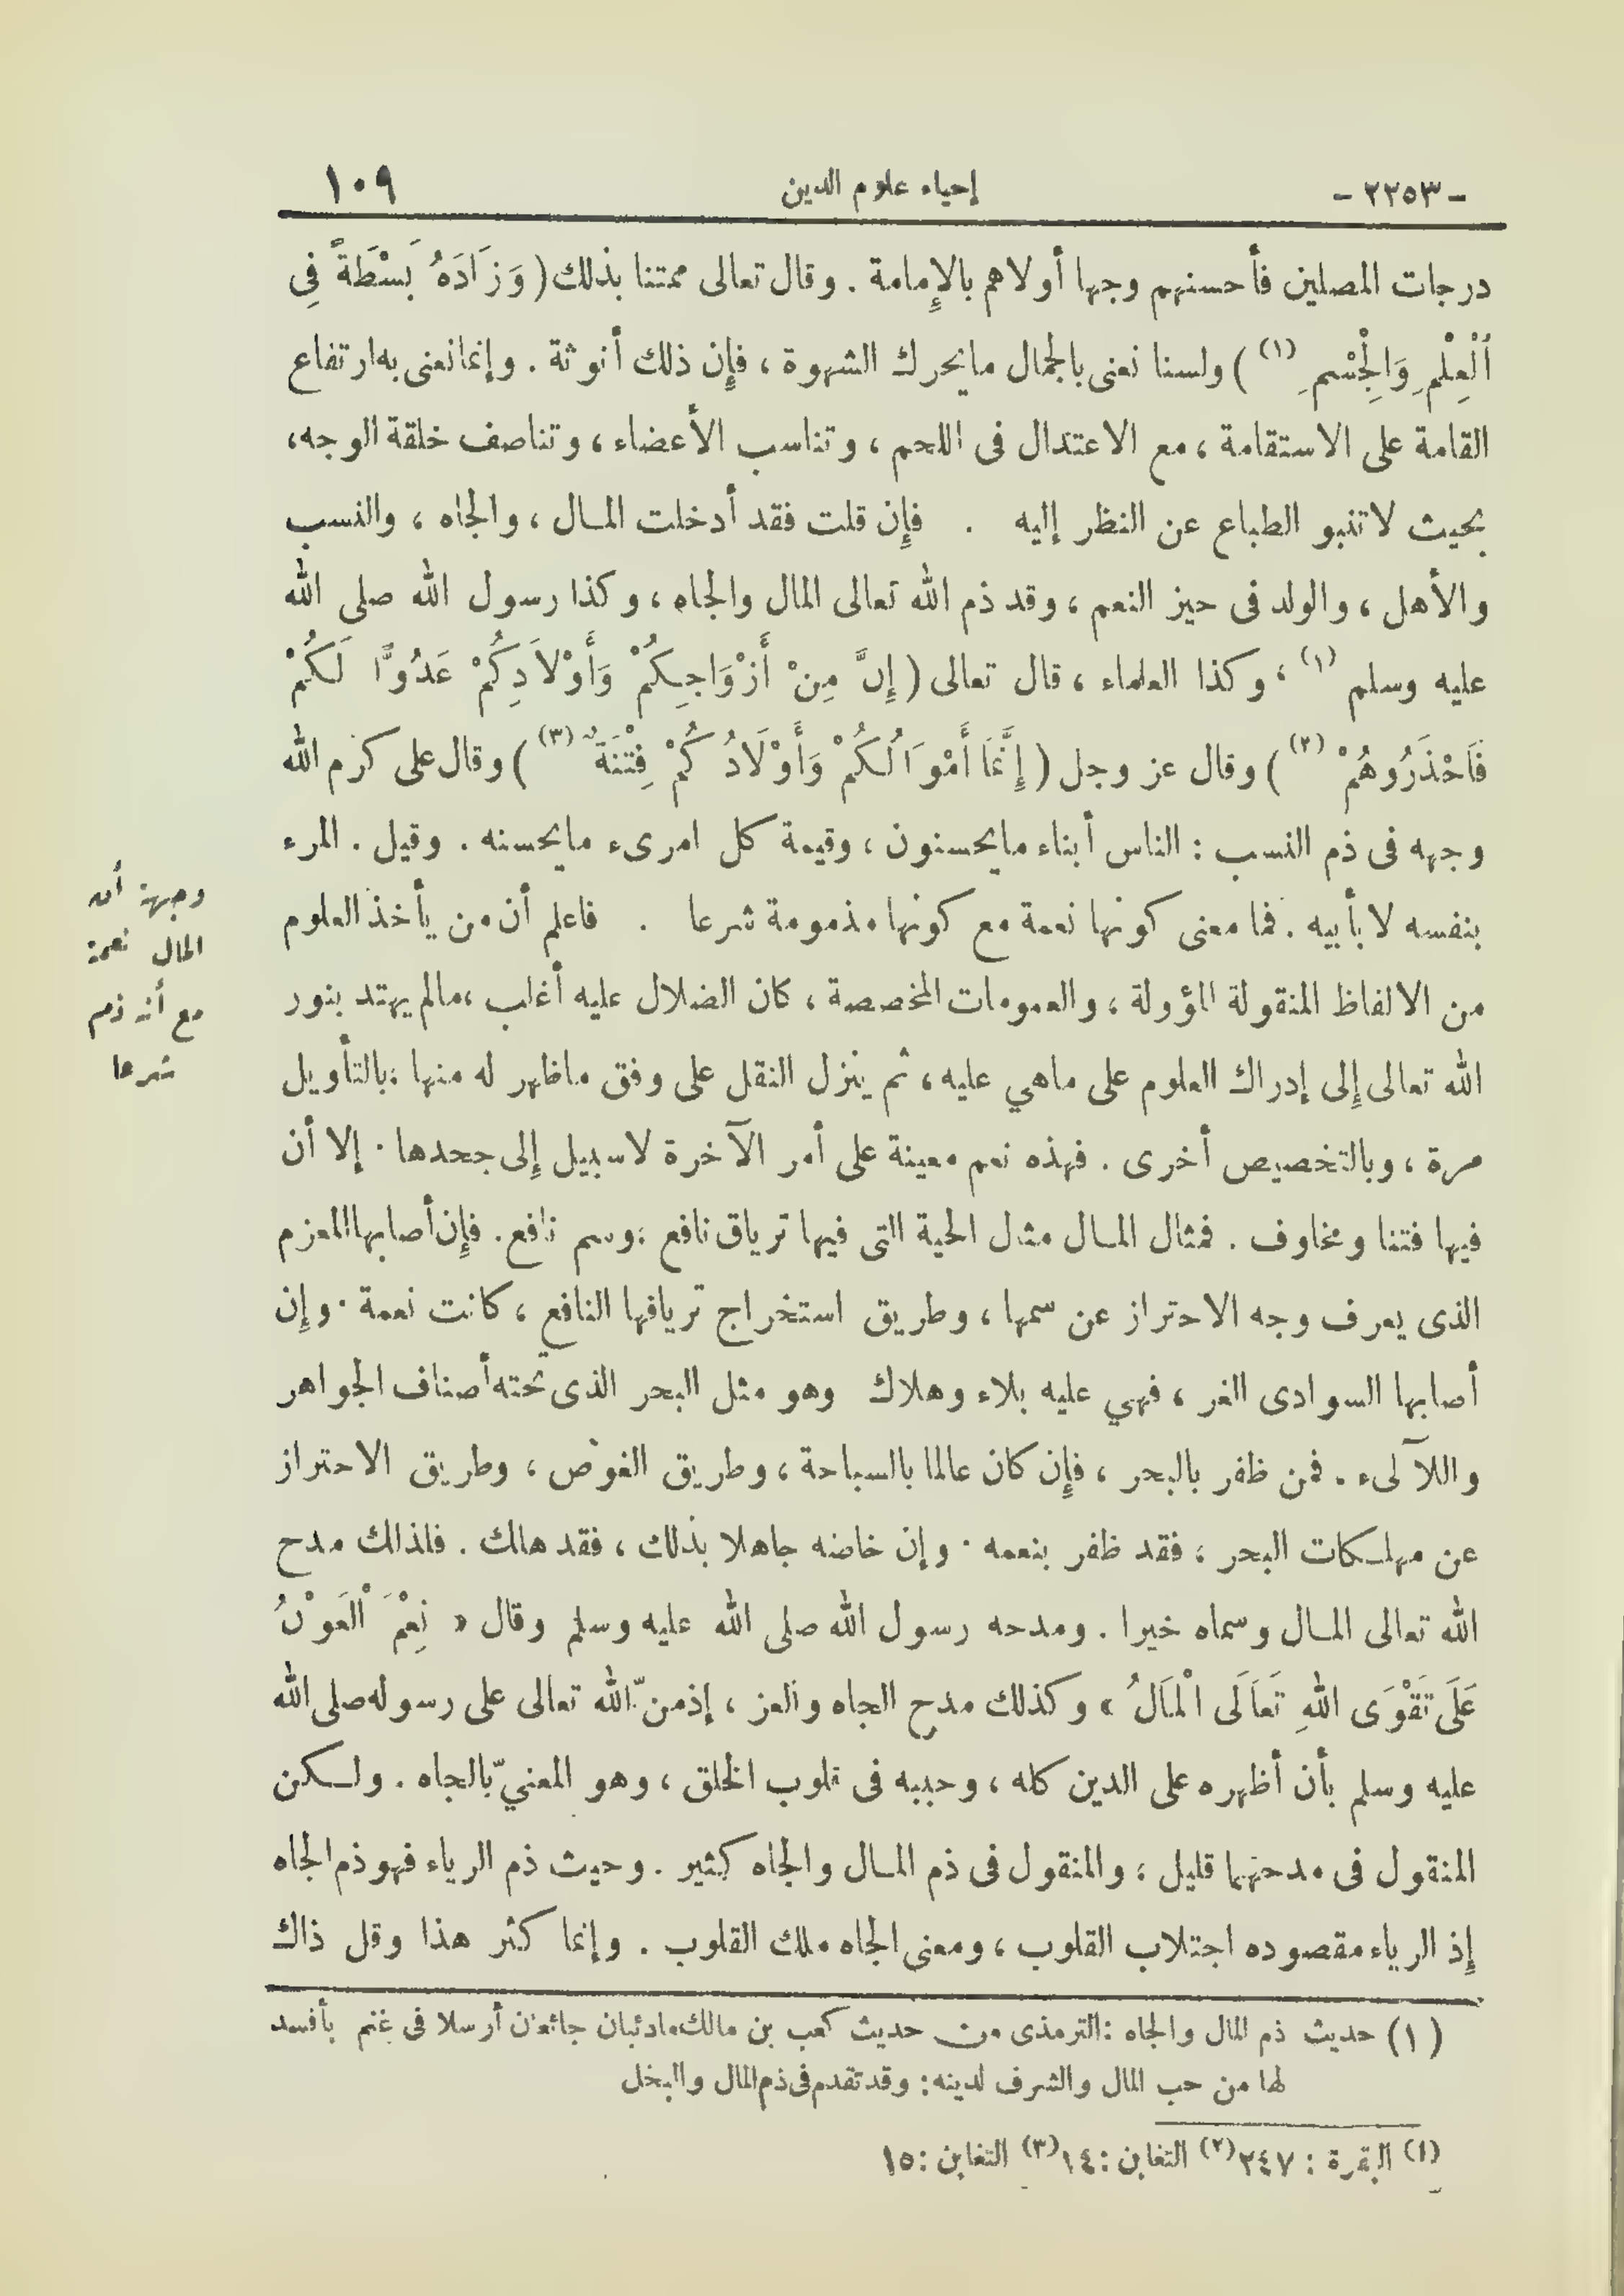 - ٢٢٥٣ - إحياء علوم الدين ١٠٩
درجات المصلين فأحسنهم وجها أولاهم بالإمامة . وقال تعالى ممتنا بذلك ( وَزَادَهُ بَسْطَةً فِى
اَلْعِلْمِ وَالْجِسْمِ (١) ) ولسنا نعنى بالجمال مايحرك الشهوة ، فإن ذلك أنوثة . وإنما نعنى به ارتفاع
القامة على الاستقامة ، مع الاعتدال فى اللحم ، وتناسب الأعضاء ، وتناصف خلقة الوجه ،
بحيث لا تنبو الطباع عن النظر إليه . فإن قلت فقد أدخلت المـال ، والجاه ، والنسب
والأهل ، والولد فى حيز النعم ، وقد ذم الله تعالى المال والجاه ، وكذا رسول الله صلى الله
عليه وسلم (١) ، وكذا العلماء ، قال تعالى ( إِنَّ مِنْ أَزْوَاجِكُمْ وَأَوْلاَدِكُمْ عَدُوًّا لَكُمْ
فَاَحْذَرُوهُمْ (٢) ) وقال عز وجل ( إِنَّمَا أَمْوَالُكُمْ وَأَوْلَادُكُمْ فِتْنَةٌ (٣) ) وقال على كرم الله
وجهه فى ذم النسب : الناس أبناء مايحسنون ، وقيمة كل امرىء مايحسنه . وقيل . المرء
بنفسه لا بأبيه . فما معنى كونها نعمة مع كونها مذمومة شرعا . فاعلم أن من يأخذ العلوم
من الالفاظ المنقولة المؤولة ، والعمومات المخصصة ، كان الضلال عليه أغلب ، مالم يهتد بنور
الله تعالى إلى إدراك العلوم على ماهي عليه ، ثم ينزل النقل على وفق ماظهر له منها ، بالتأويل
مرة ، وبالتخصيص أخرى . فهذه نعم معينة على أمر الآخرة لاسبيل إلى جحدها . إلا أن
فيها فتنا ومخاوف . فمثال المـال مثال الحية التى فيها ترياق نافع ، وسم نافع . فإن أصابها المعزم
الذى يعرف وجه الاحتراز عن سمها ، وطريق استخراج ترياقها النافع ، كانت نعمة . وإن
أصابها السوادى الغر ، فهي عليه بلاء وهلاك وهو مثل البحر الذى تحته أصناف الجواهر
واللآلىء . فمن ظفر بالبحر ، فإن كان عالما بالسباحة ، وطريق الغوص ، وطريق الاحتراز
عن مهلـكات البحر ، فقد ظفر بنعمه . وإن خاضه جاهلا بذلك ، فقد هلك . فلذلك مدح
الله تعالى المـال وسماه خيرا . ومدحه رسول الله صلى الله عليه وسلم وقال « نِعْمَ اْلعَوْنُ
عَلَى تَقْوَى اللهِ تَعَالَى الْمَالُ » وكذلك مدح الجاه والعز ، إذمنّ الله تعالى على رسوله صلى الله
عليه وسلم بأن أظهره على الدين كله ، وحببه فى قلوب الخلق ، وهو المعنيّ بالجاه . ولـكن
المنقول فى مدحهما قليل ، والمنقول فى ذم المـال والجاه كثير . وحيث ذم الرياء فهو ذم الجاه
إذ الرياء مقصوده اجتلاب القلوب ، ومعنى الجاه ملك القلوب . وإنما كثر هذا وقل ذاك
وجهة أن
المال نعمة
مع أنه ذم
شرعا
(١) حديث ذم المال والجاه : الترمذى من حديث كعب بن مالك ماذئبان جائعان أرسلا فى غنم بأفسد
لها من حب المال والشرف لدينه : وقد تقدم فى ذم المال والبخل
(١) البقرة : ٢٤٧ (٢) التغابن : ١٤ (٣) التغابن : ١٥